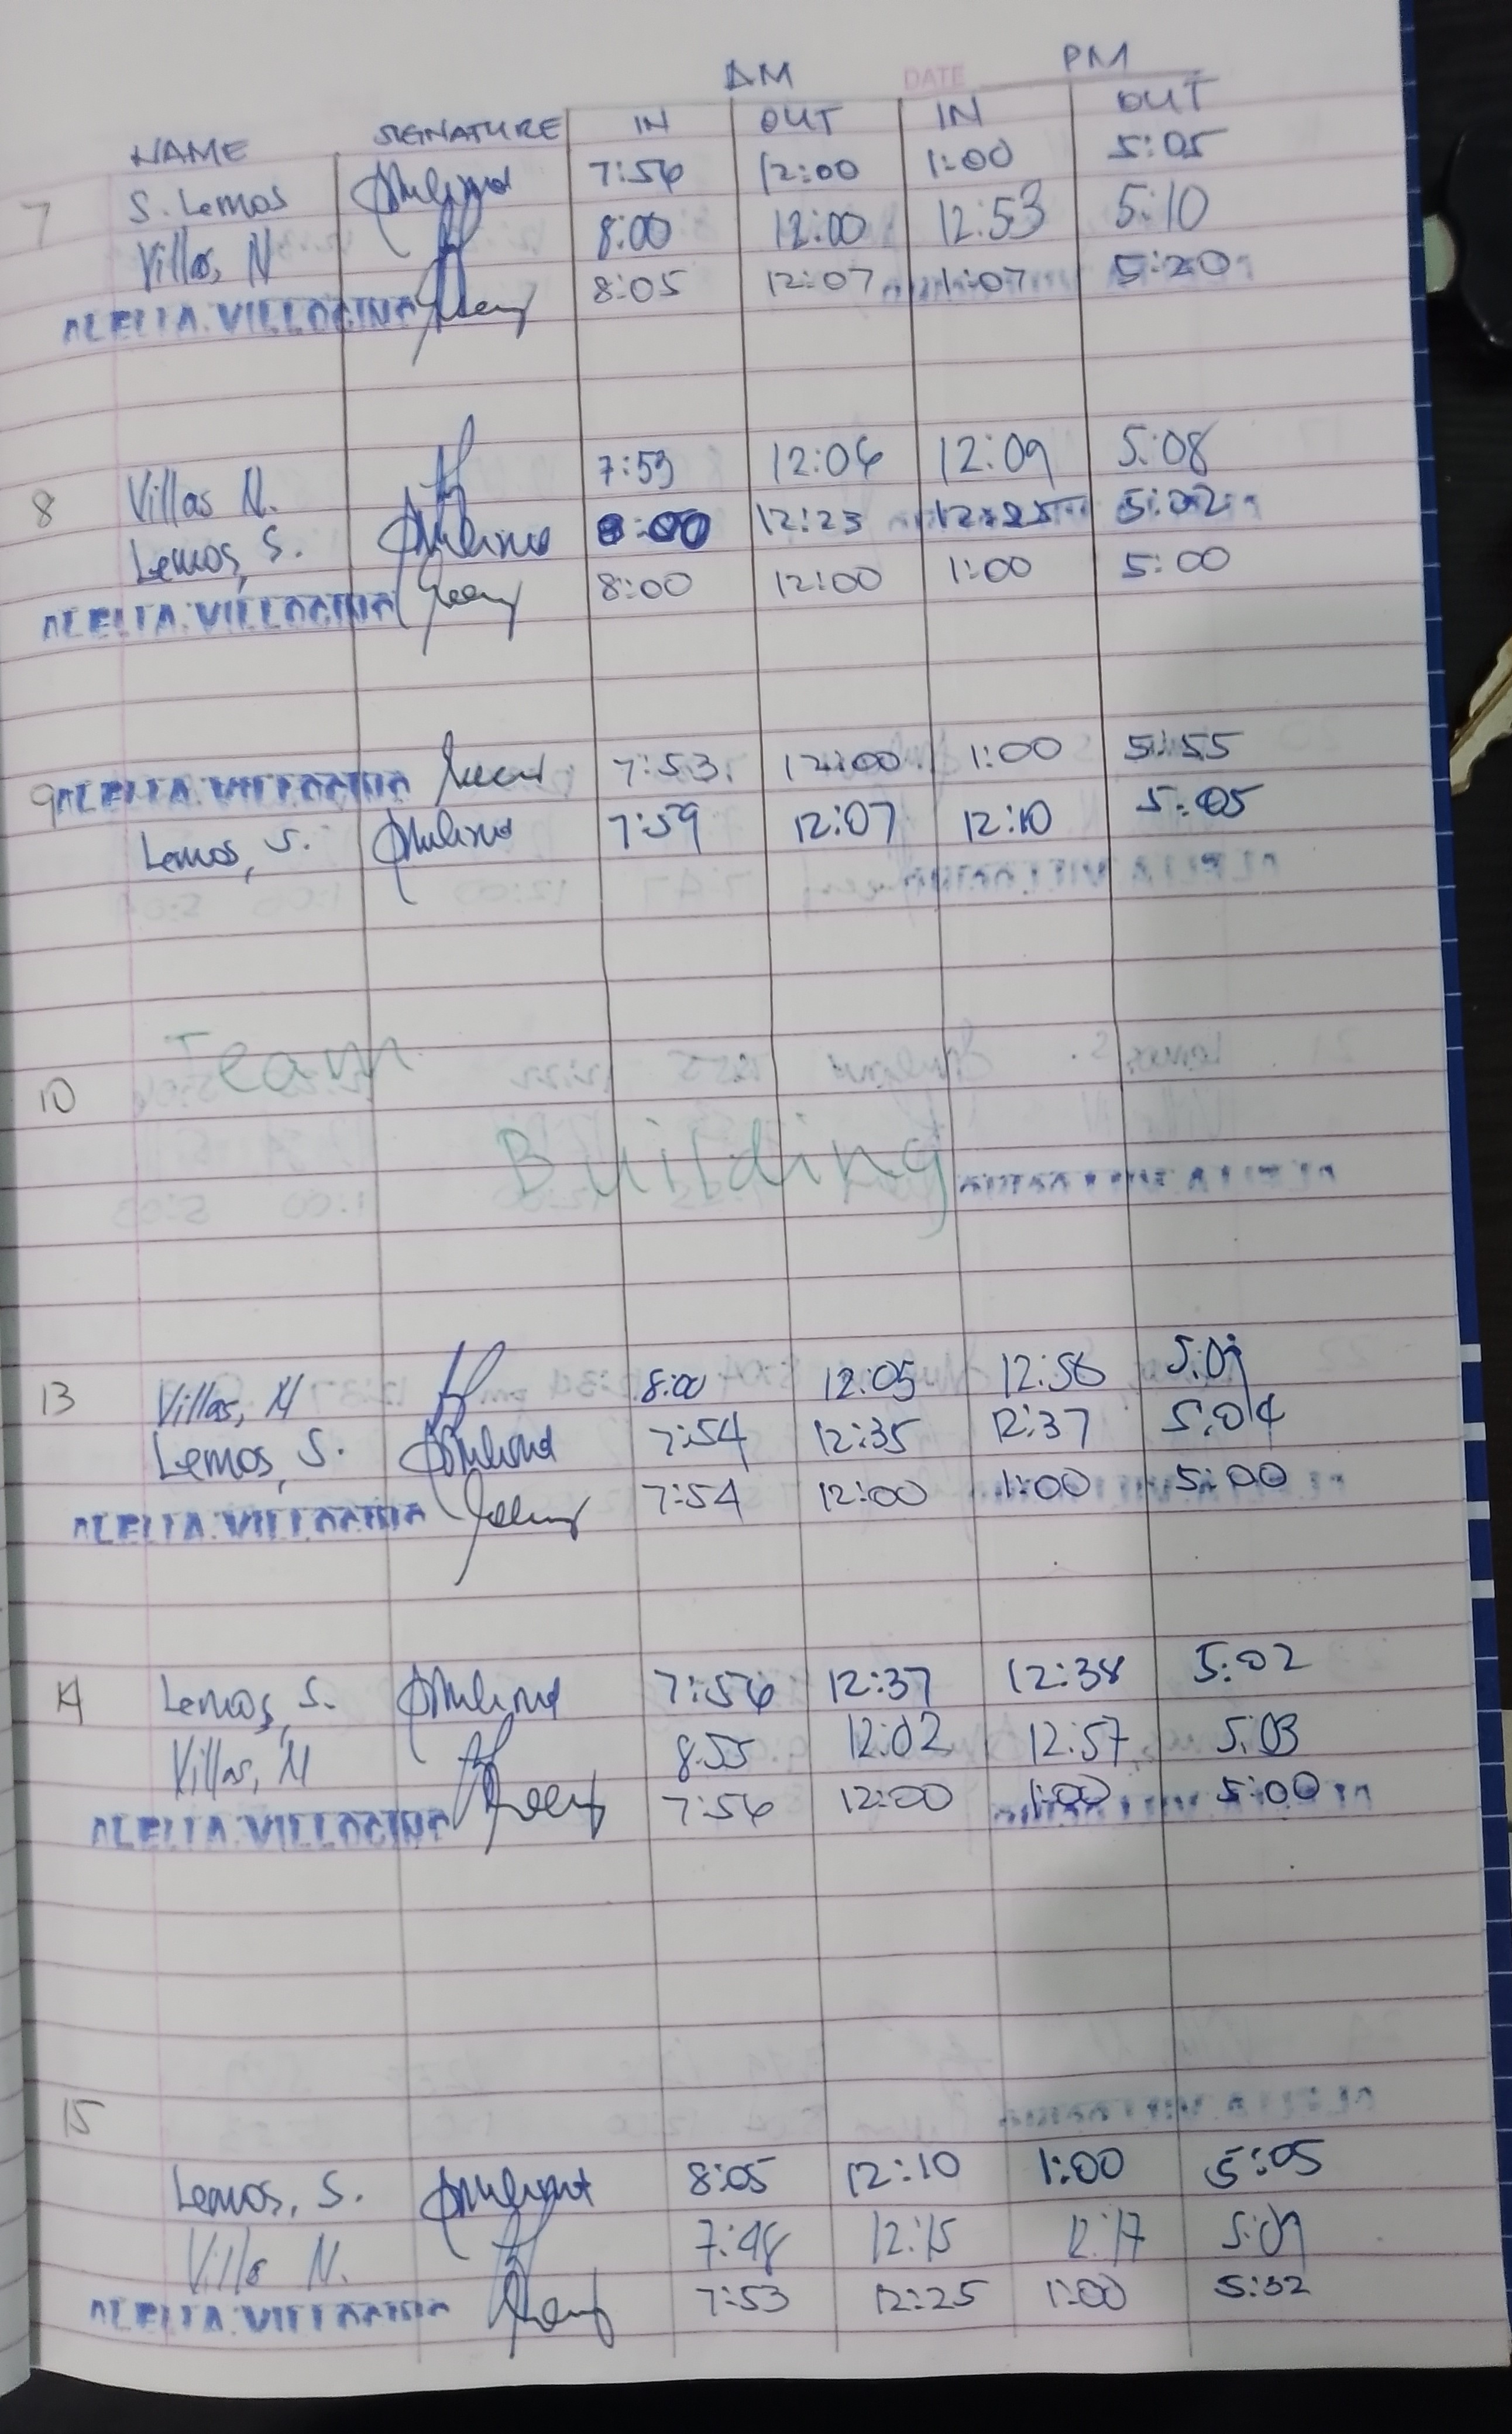 AM DATE PM
NAME SIGNATURE IN OUT IN OUT
7 S. Lemos 7:56 12:00 1:00 5:05
Villas, N 8:00 12:00 12:53 5:10
ALELIA. VILLOCINO 8:05 12:07 1:07 5:20
8 Villas N. 7:53 12:06 12:09 5:08
Lemos, S. 8:00 12:23 12:25 5:02
ALELIA. VILLOCINO 8:00 12:00 1:00 5:00
9 ALELIA. VILLOCINO 7:53 12:00 1:00 5:55
Lemos, S. 7:59 12:07 12:10 5:05
Team
10
Building
13 Villas, N 8:00 12:05 12:58 5:09
Lemos, S. 7:54 12:35 12:37 5:04
ALELIA. VILLOCINO 7:54 12:00 1:00 5:00
14 Lemos, S. 7:56 12:37 12:38 5:02
Villas, N 8:55 12:02 12:57 5:03
ALELIA. VILLOCINO 7:56 12:00 1:00 5:00
15
Lemos, S. 8:05 12:10 1:00 5:05
Villa N. 7:48 12:15 12:17 5:09
ALELIA. VILLOCINO 7:53 12:25 1:00 5:32